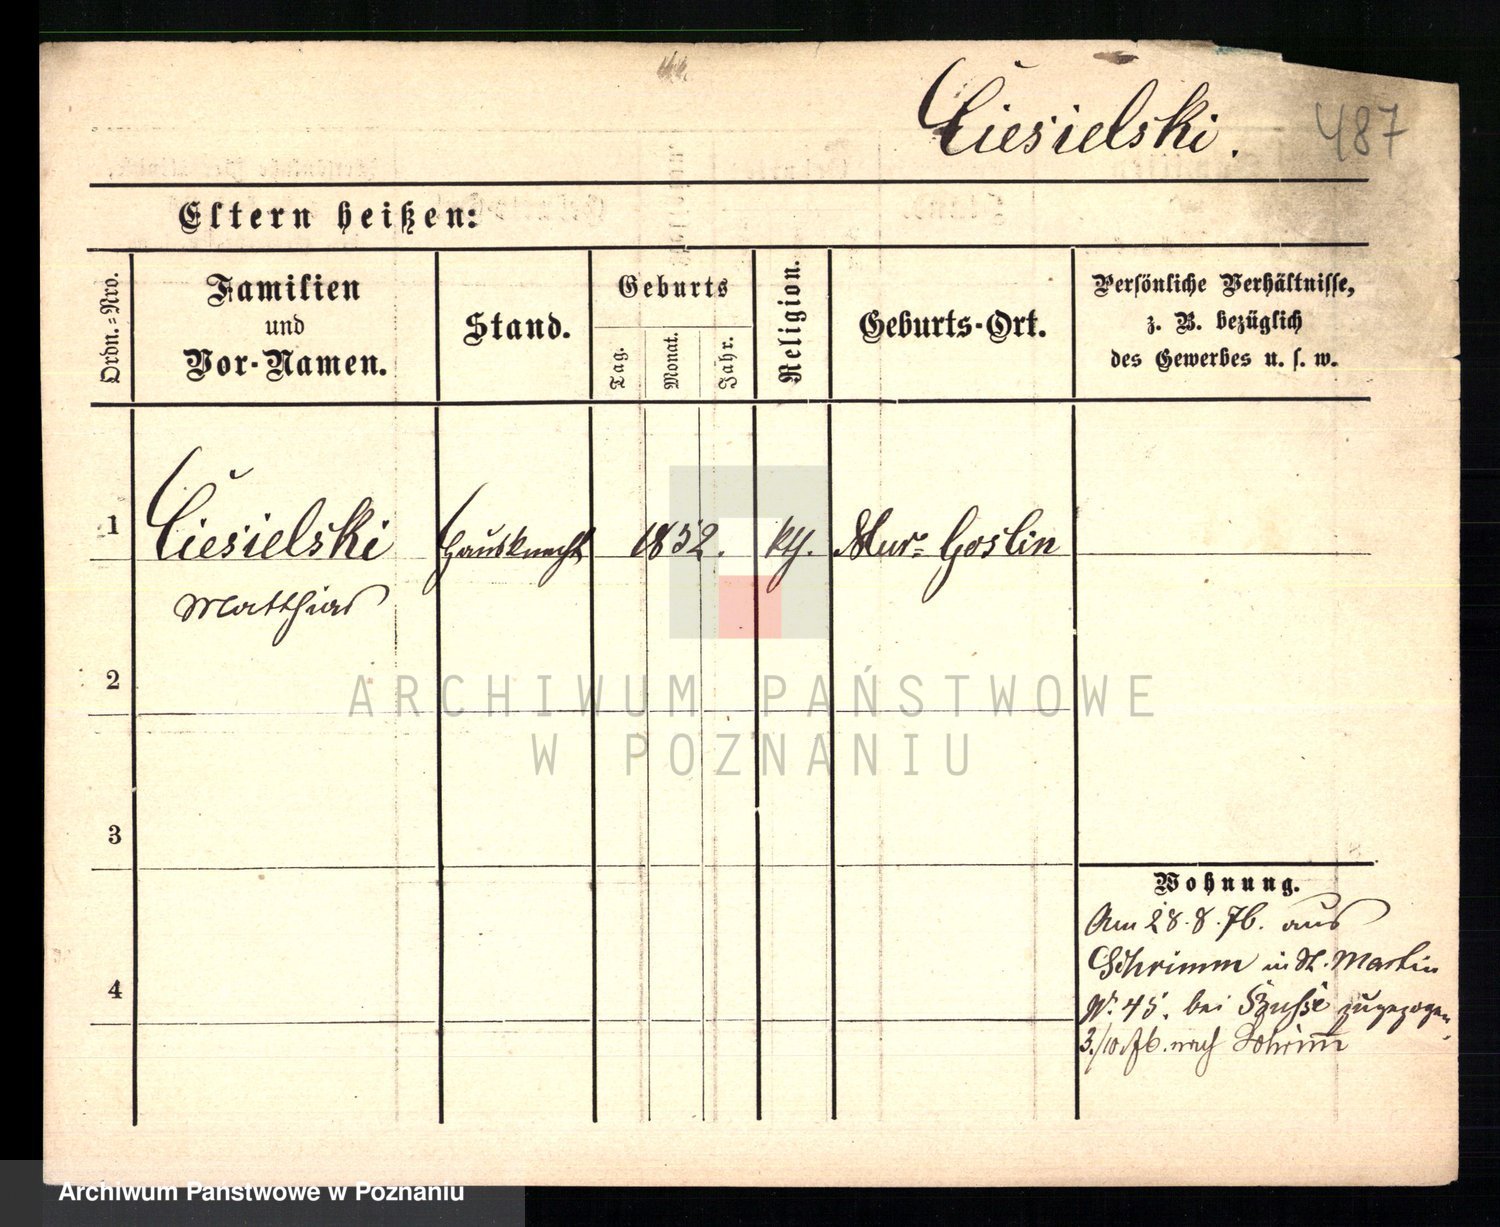 Ciesielski.
487
Eltern heißen:
Ordn.=Nro.
Familien
und
Vor-Namen.
Stand.
Geburts
Tag.
Monat.
Jahr.
Religion.
Geburts-Ort.
Persönliche Verhältnisse,
z. B. bezüglich
des Gewerbes u. s. w.
1
Ciesielski
Matthias
Hausknecht
1852.
kth.
Mur= Goslin
2
3
4
Wohnung.
Am 28.8.76. aus
Schrimm in St. Martin
N: 45. bei zugezogen,
3./10.76. nach Schrim̅
ARCHIWUM PAŃSTWOWE
W POZNANIU
Archiwum Państwowe w Poznaniu